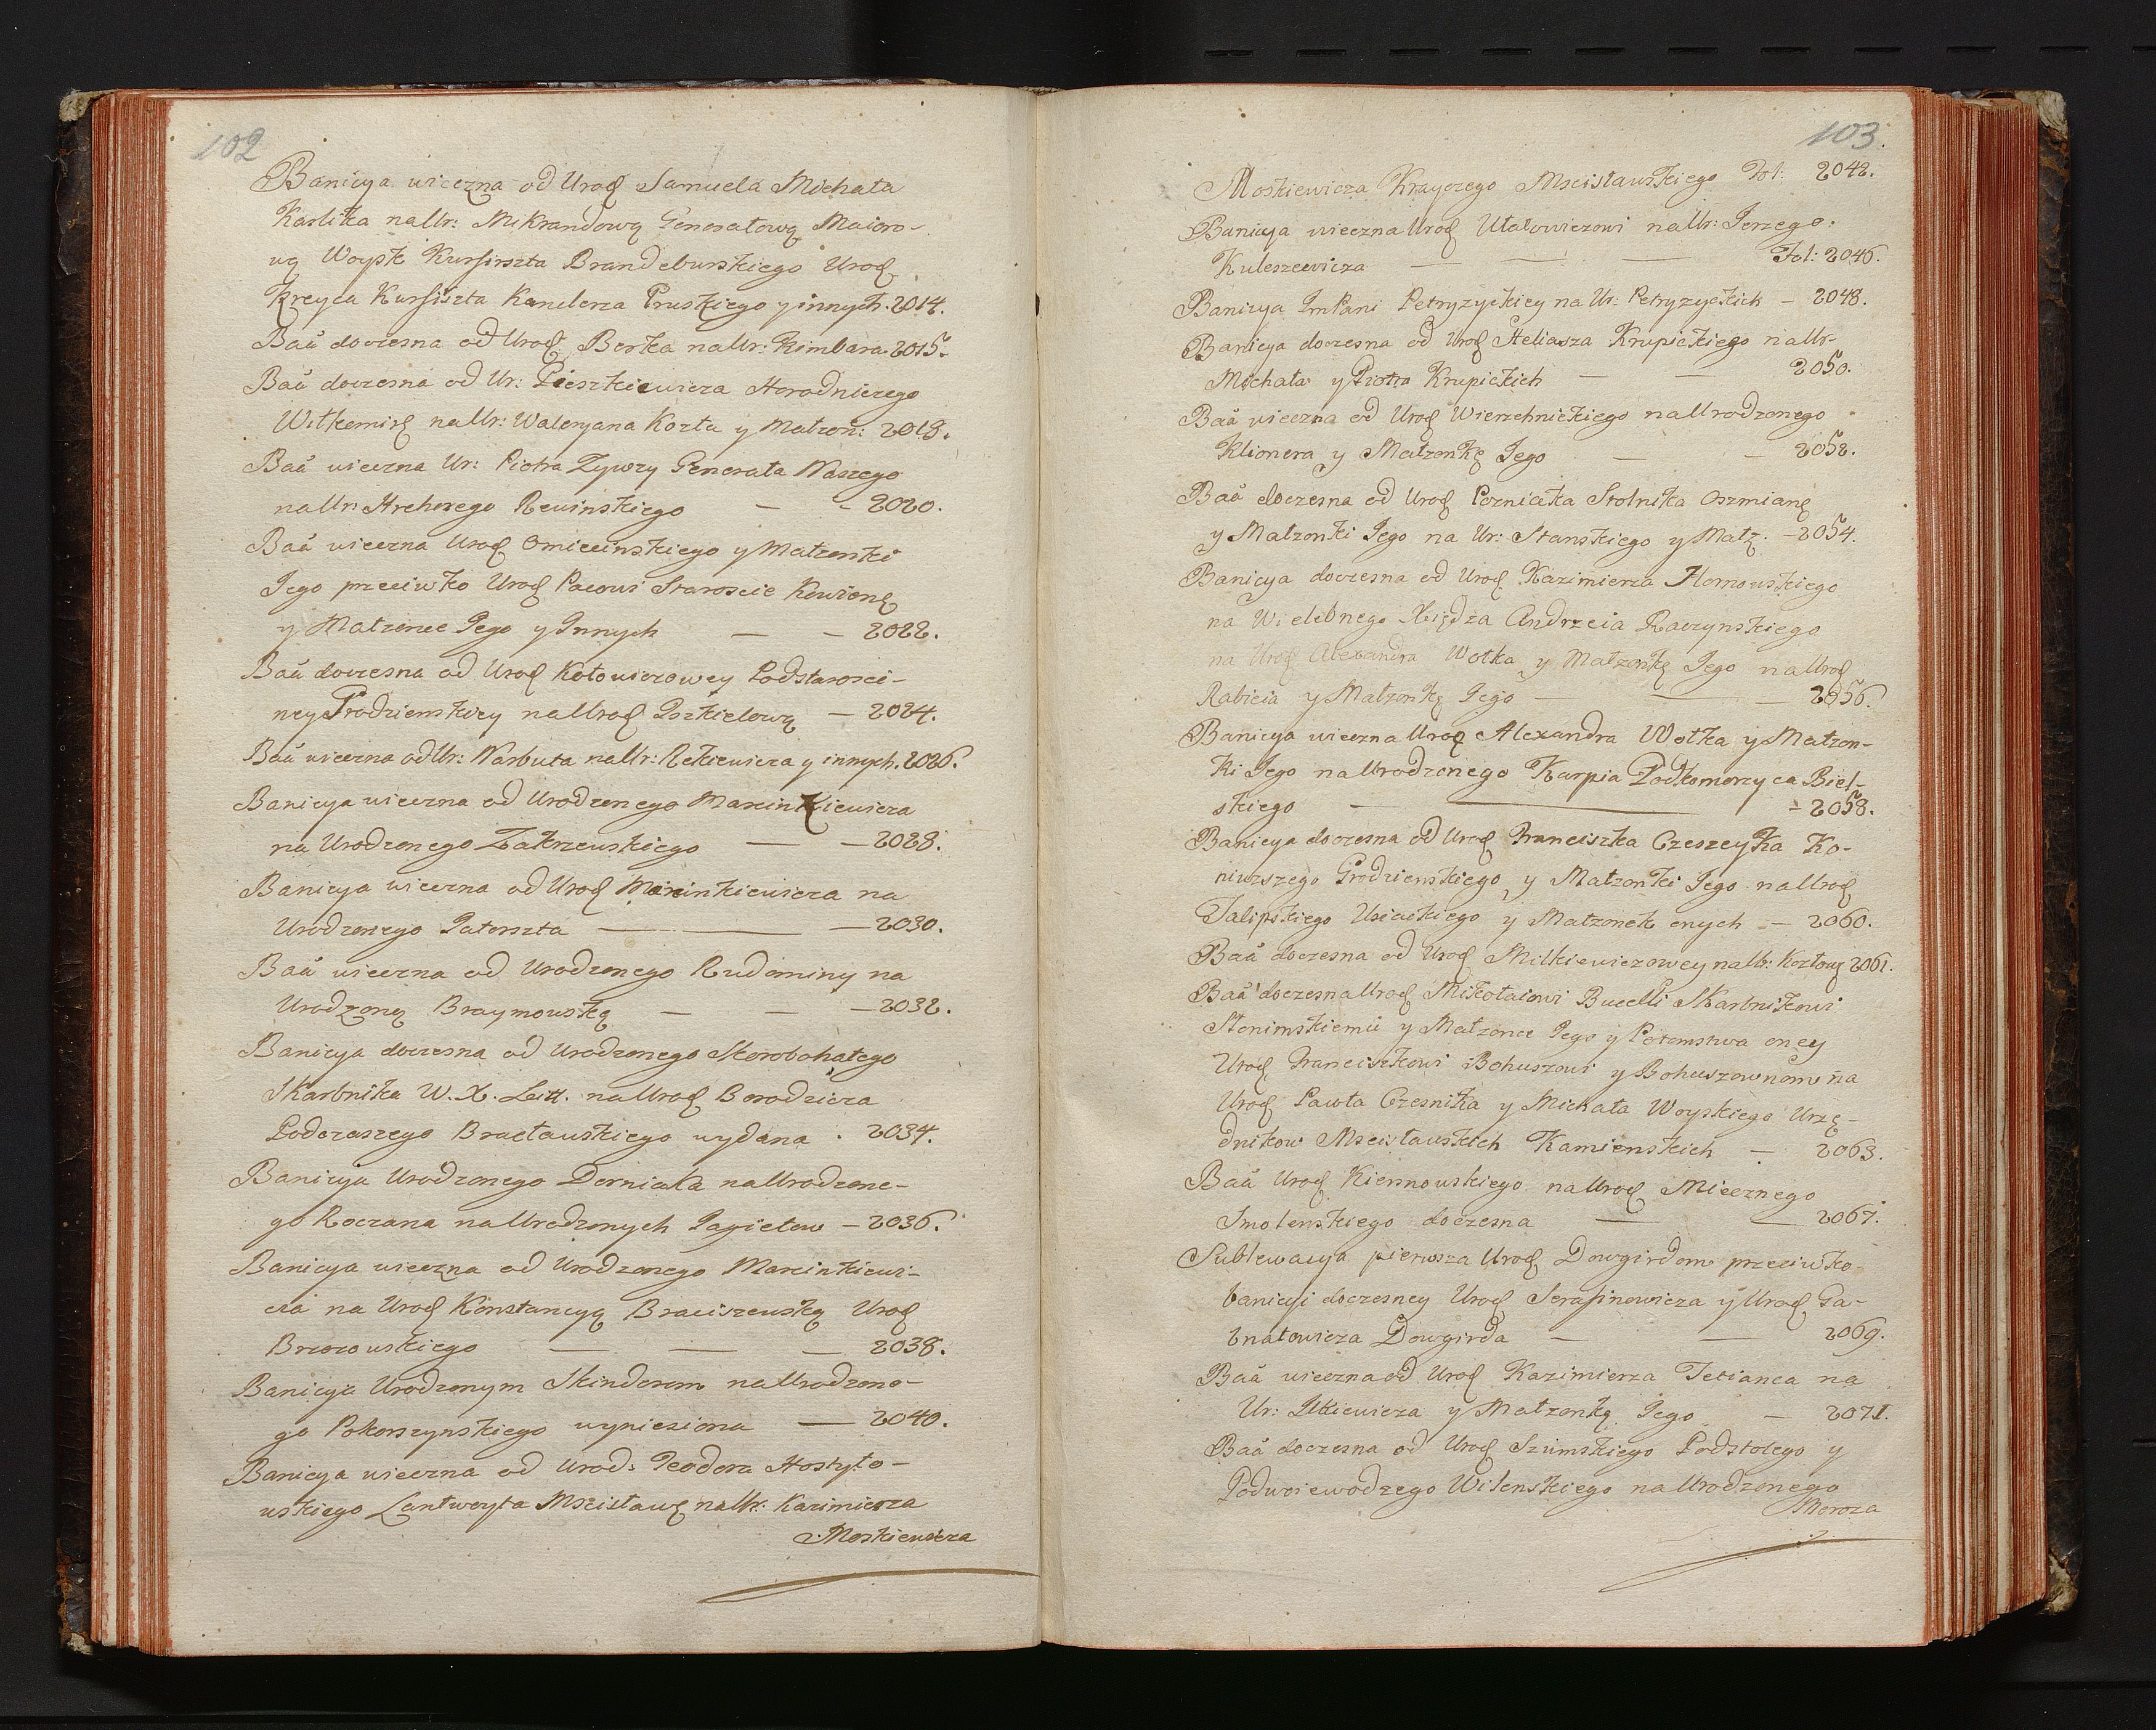 102
Banicya wieczna od Urod Samuela Michała
Karlika na Ur: Mikrandową Generałową Maioro-
wą Woysk Kurfirszta Brandeburskiego Urod
Kreyca Kurfiszta Kanclerza Pruskiego y innych. 2014.
Bań doczesna od Urod Berka na Ur: Kimbara. 2015.
Bań doczesna od Ur: Pieszkiewicza Horodniczego
Wiłkomirs na Ur: Waleryana Kozła y Małzon: 2018.
Bań wieczna Ur: Piotra Zywzy Generała Naszego
na Ur: Hrehorego Rewinskiego — - 2020.
Bań wieczna Urod Omiecinskiego y Małzonki
Jego przeciwko Urod Pacowi Staroscie Kowiens
y Małzonce Jego y Innych — - 2022.
Bań doczesna od Urod Kotowiczowey Podstarosci-
ney Grodzienskiey na Urod Jszkielową — 2024.
Bań wieczna od Ur: Narbuta na Ur: Rekiewicza y innych. 2026.
Banicya wieczna od Urodzonego Marcinkiewicza
na Urodzonego Zakrzewskiego — — 2028.
Banicya wieczna od Urod Marcinkiewicza na
Urodzonego Paterszta — — — 2030.
Bań wieczna od Urodzonego Rudominy na
Urodzoną Braymowską — — — 2032.
Banicya doczesna od Urodzonego Skorobohatego
Skarbnika W. X. Litt. na Urod Borodzicza
Podczaszego Bracławskiego wydana . 2034.
Banicya Urodzonego Derniaka na Urodzone-
go Roczana na Urodzonych Jagiełow — 2036.
Banicya wieczna od Urodzonego Marcinkiewi-
cza na Urod Konstancyą Braciszewską Urod
Brzozowskiego — — — 2038.
Banicya Urodzonym Skinderom na Urodzone-
go Pokorszynskiego wyniesiona — 2040.
Banicya wieczna od Urod: Teodora Hostyło-
wskiego Lantwoyta Mscisławs na Ur: Kazimierza
Moskiewicza
103.
Moskiewicza Krayczego Mscisławskiego Fol: 2042.
Banicya wieczna Urod Utałowiczowi na Ur: Jerzego.
Kuleszewicza — — — Fol: 2046.
Banicya ImPani Petryzyckiey na Ur: Petryzyckich — 2048.
Banicya doczesna od Urod Heliasza Krupickiego na Ur-
Michała y Piotra Krupickich — — 2050.
Bań wieczna od Urod Wierzchnickiego na Urodzonego
Klionera y Małzonkę Jego — — 2052.
Bań doczesna od Urod Pozniaka Stolnika Oszmians
y Małzonki Jego na Ur: Stanskiego y Małz. — 2054.
Banicya doczesna od Urod Kazimierza Hornowskiego
na Wielebnego Xiędza Andrzeia Raczynskiego
na Urod Alexandra Wołka y Małzonkę Jego na Urod
Rabieia y Małzonkę Jego — — 2056.
Banicya wieczna Urod Alexandra Wołka y Małzon-
ki Jego na Urodzonego Karpia Podkomorzyca Biel-
skiego — — - 2058.
Banicya doczesna od Urod Franciszka Czeszeyka Ko-
niuszego Grodzienskiego y Małzonki Jego na Urod
Talipskiego Usiackiego y Małzonek onych — 2060.
Bań doczesna od Urod Milkiewiczowey na Ur: Kozłową 2061.
Bań doczesna Urod Mikołaiowi Bucelli Skarbnikowi
Słonimskiemu y Małzonce Jego y Potomstwa oney
Urod Franciszkowi Bohuszowi y Bohuszownom na
Urod Pawła Czesnika y Michała Woyskiego Urzę-
dnikow Mscisławskich Kamienskich — 2063.
Bań Urod Kiersnowskiego na Urod Miecznego
Smolenskiego doczesna — — 2067.
Sublewacya pierwsza Urod Dowgirdom przeciwko
banicyi doczesney Urod Serafinowicza y Urod Ga-
bnatowicza Dowgirda — — 2069.
Bań wieczna od Urod Kazimierza Tetianca na
Ur: Jlkiewicza y Małzonkę Jego — 2071.
Bań doczesna od Urod Szumskiego Podstolego y
Podwoiewodzego Wilenskiego na Urodzonego
Moroza